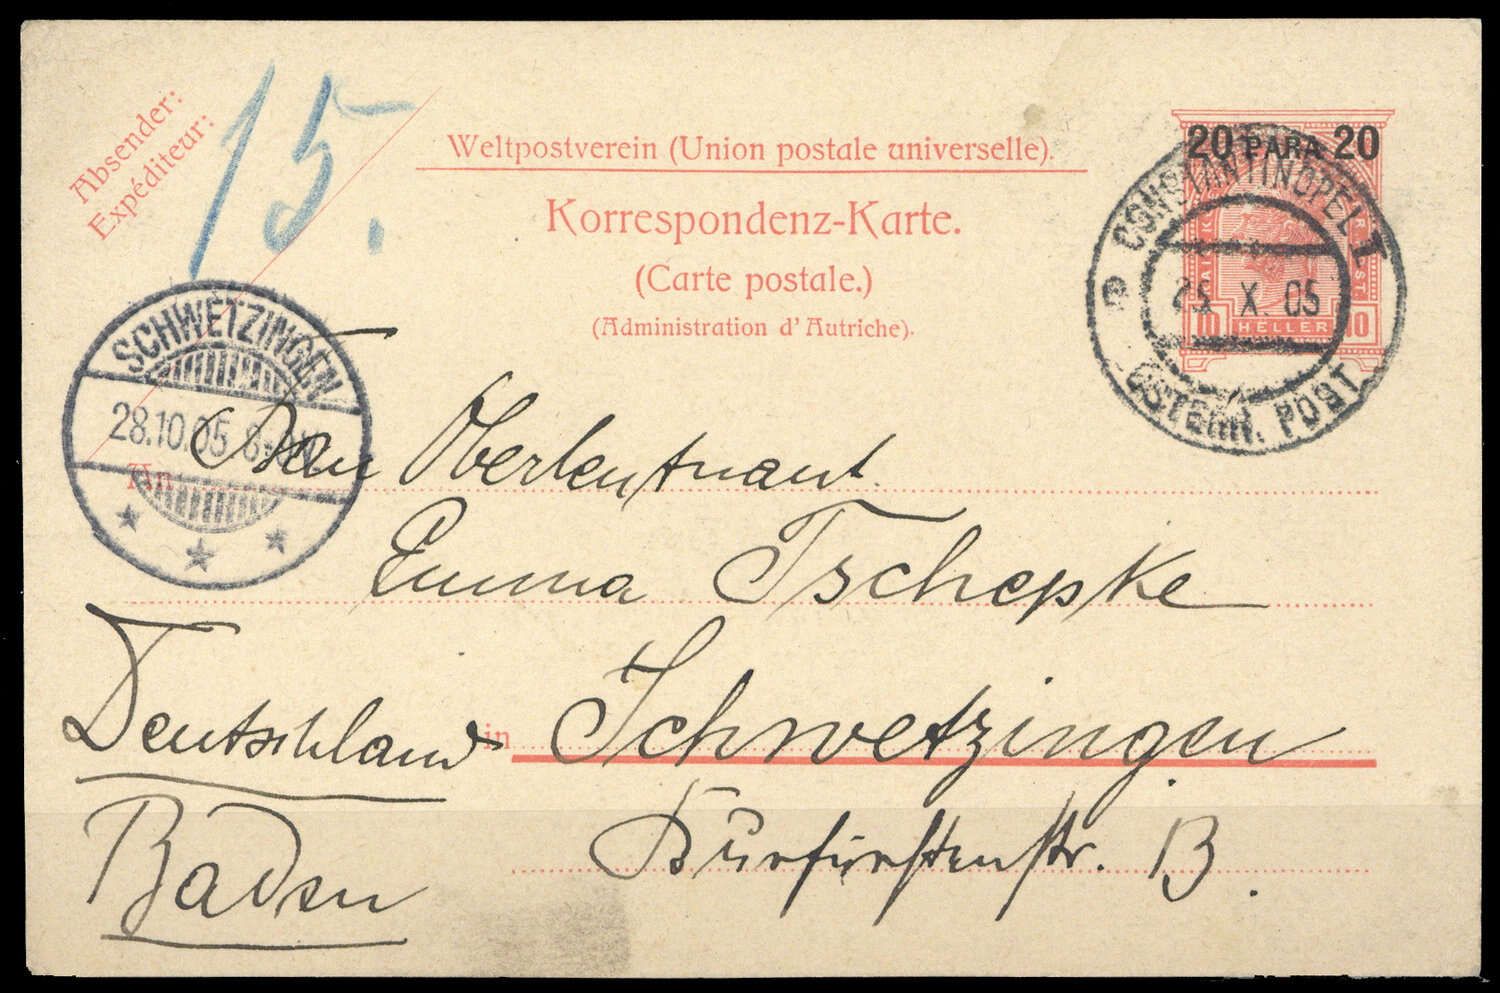 Absender:
Expéditeur:
15.
Weltpostverein (Union postale universelle).
Korrespondenz-Karte.
(Carte postale.)
(Administration d'Autriche).
20 PARA 20
10 HELLER 10
CONSTANTINOPEL I
25 X. 05
ÖSTERR. POST
SCHWETZINGEN
28.10.05
An
Frau Oberleutnant
Emma Tschepke
in Schwetzingen
Deutschland
Kurfürstenstr. 13.
Baden